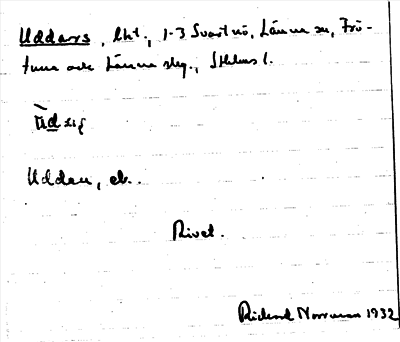 Uddars, lht., 1-3 Svartnö, Länna sn, Frö-
tuna och Länna skg., Sthlms l.
Udden, eb.
Rivet.
Rickard Norrman 1932